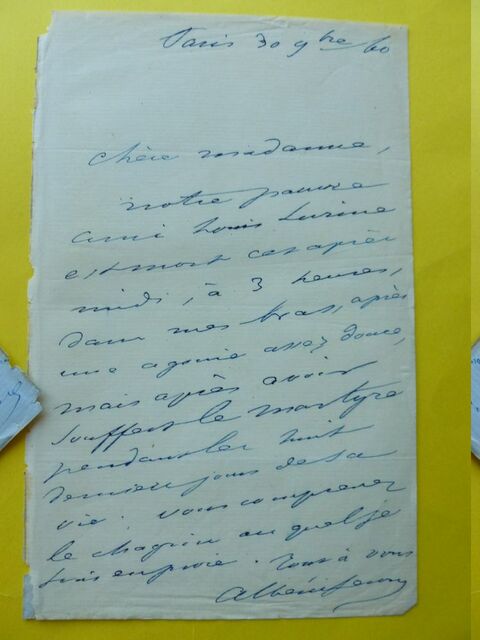 Paris 30 9bre 60
chère madame,
notre pauvre
ami Louis Lurine
est mort cet après
midi, à 3 heures,
dans mes bras, après
une agonie assez douce,
mais après avoir
souffert le martyre
pendant les huit
derniers jours de sa
vie. vous comprenez
le chagrin au quel je
suis en proie. tout à vous
Albéric Second